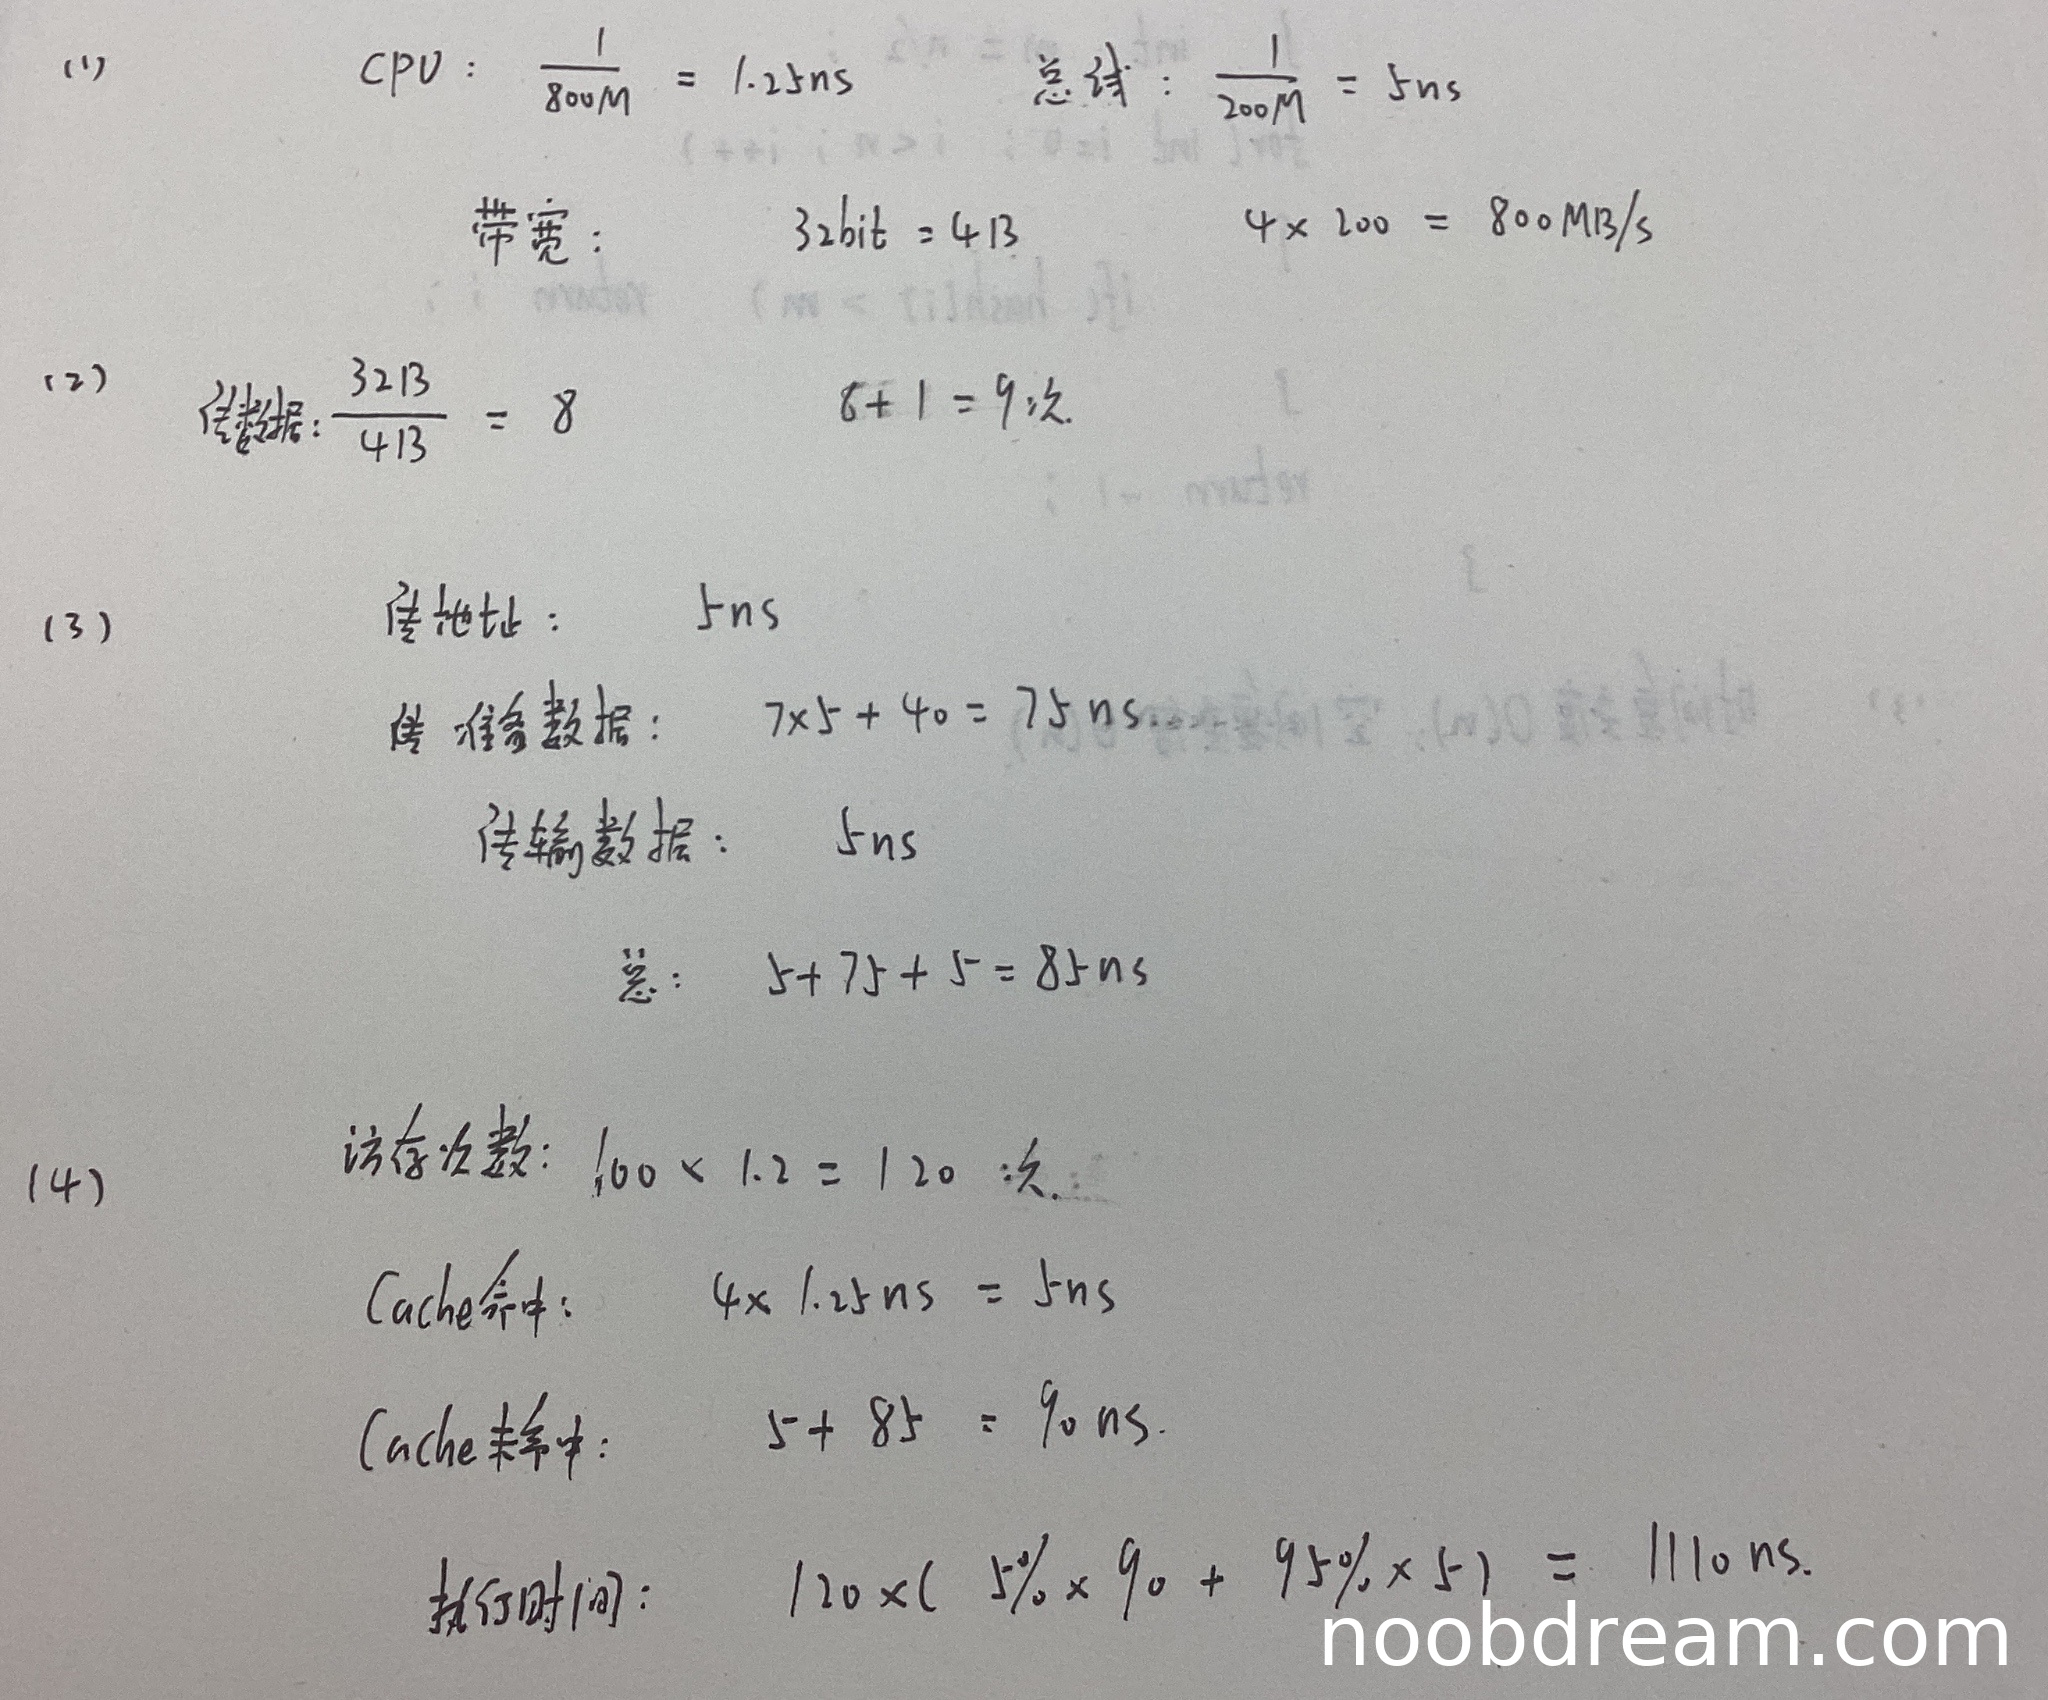 (1) CPU: 1/800M = 1.25ns 总线: 1/200M = 5ns
带宽: 32bit = 4B 4×200 = 800MB/s
(2) 传数据: 32B/4B = 8 8+1=9次.
(3) 传地址: 5ns
传 准备数据: 7×5+40=75ns
传输数据: 5ns
总: 5+75+5=85ns
(4) 访存次数: 100×1.2=120 次.
Cache命中: 4×1.25ns = 5ns
Cache未命中: 5+85 = 90ns.
执行时间: 120×( 5%×90 + 95%×5) = 1110ns.
noobdream.com